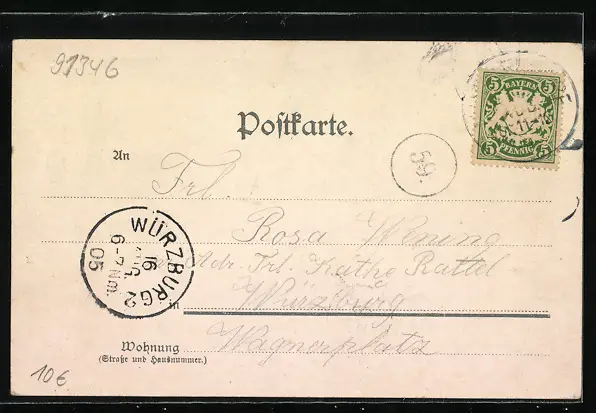 91346
5 BAYERN 5
5 PFENNIG 5
Postkarte.
59.
An
Frl.
Rosa Wening
Adr. Frl. Käthe Rattel
WÜRZBURG 2
16
6-7 Nm.
05
in Würzburg
Wagnerplatz
Wohnung
(Straße und Hausnummer.)
10€